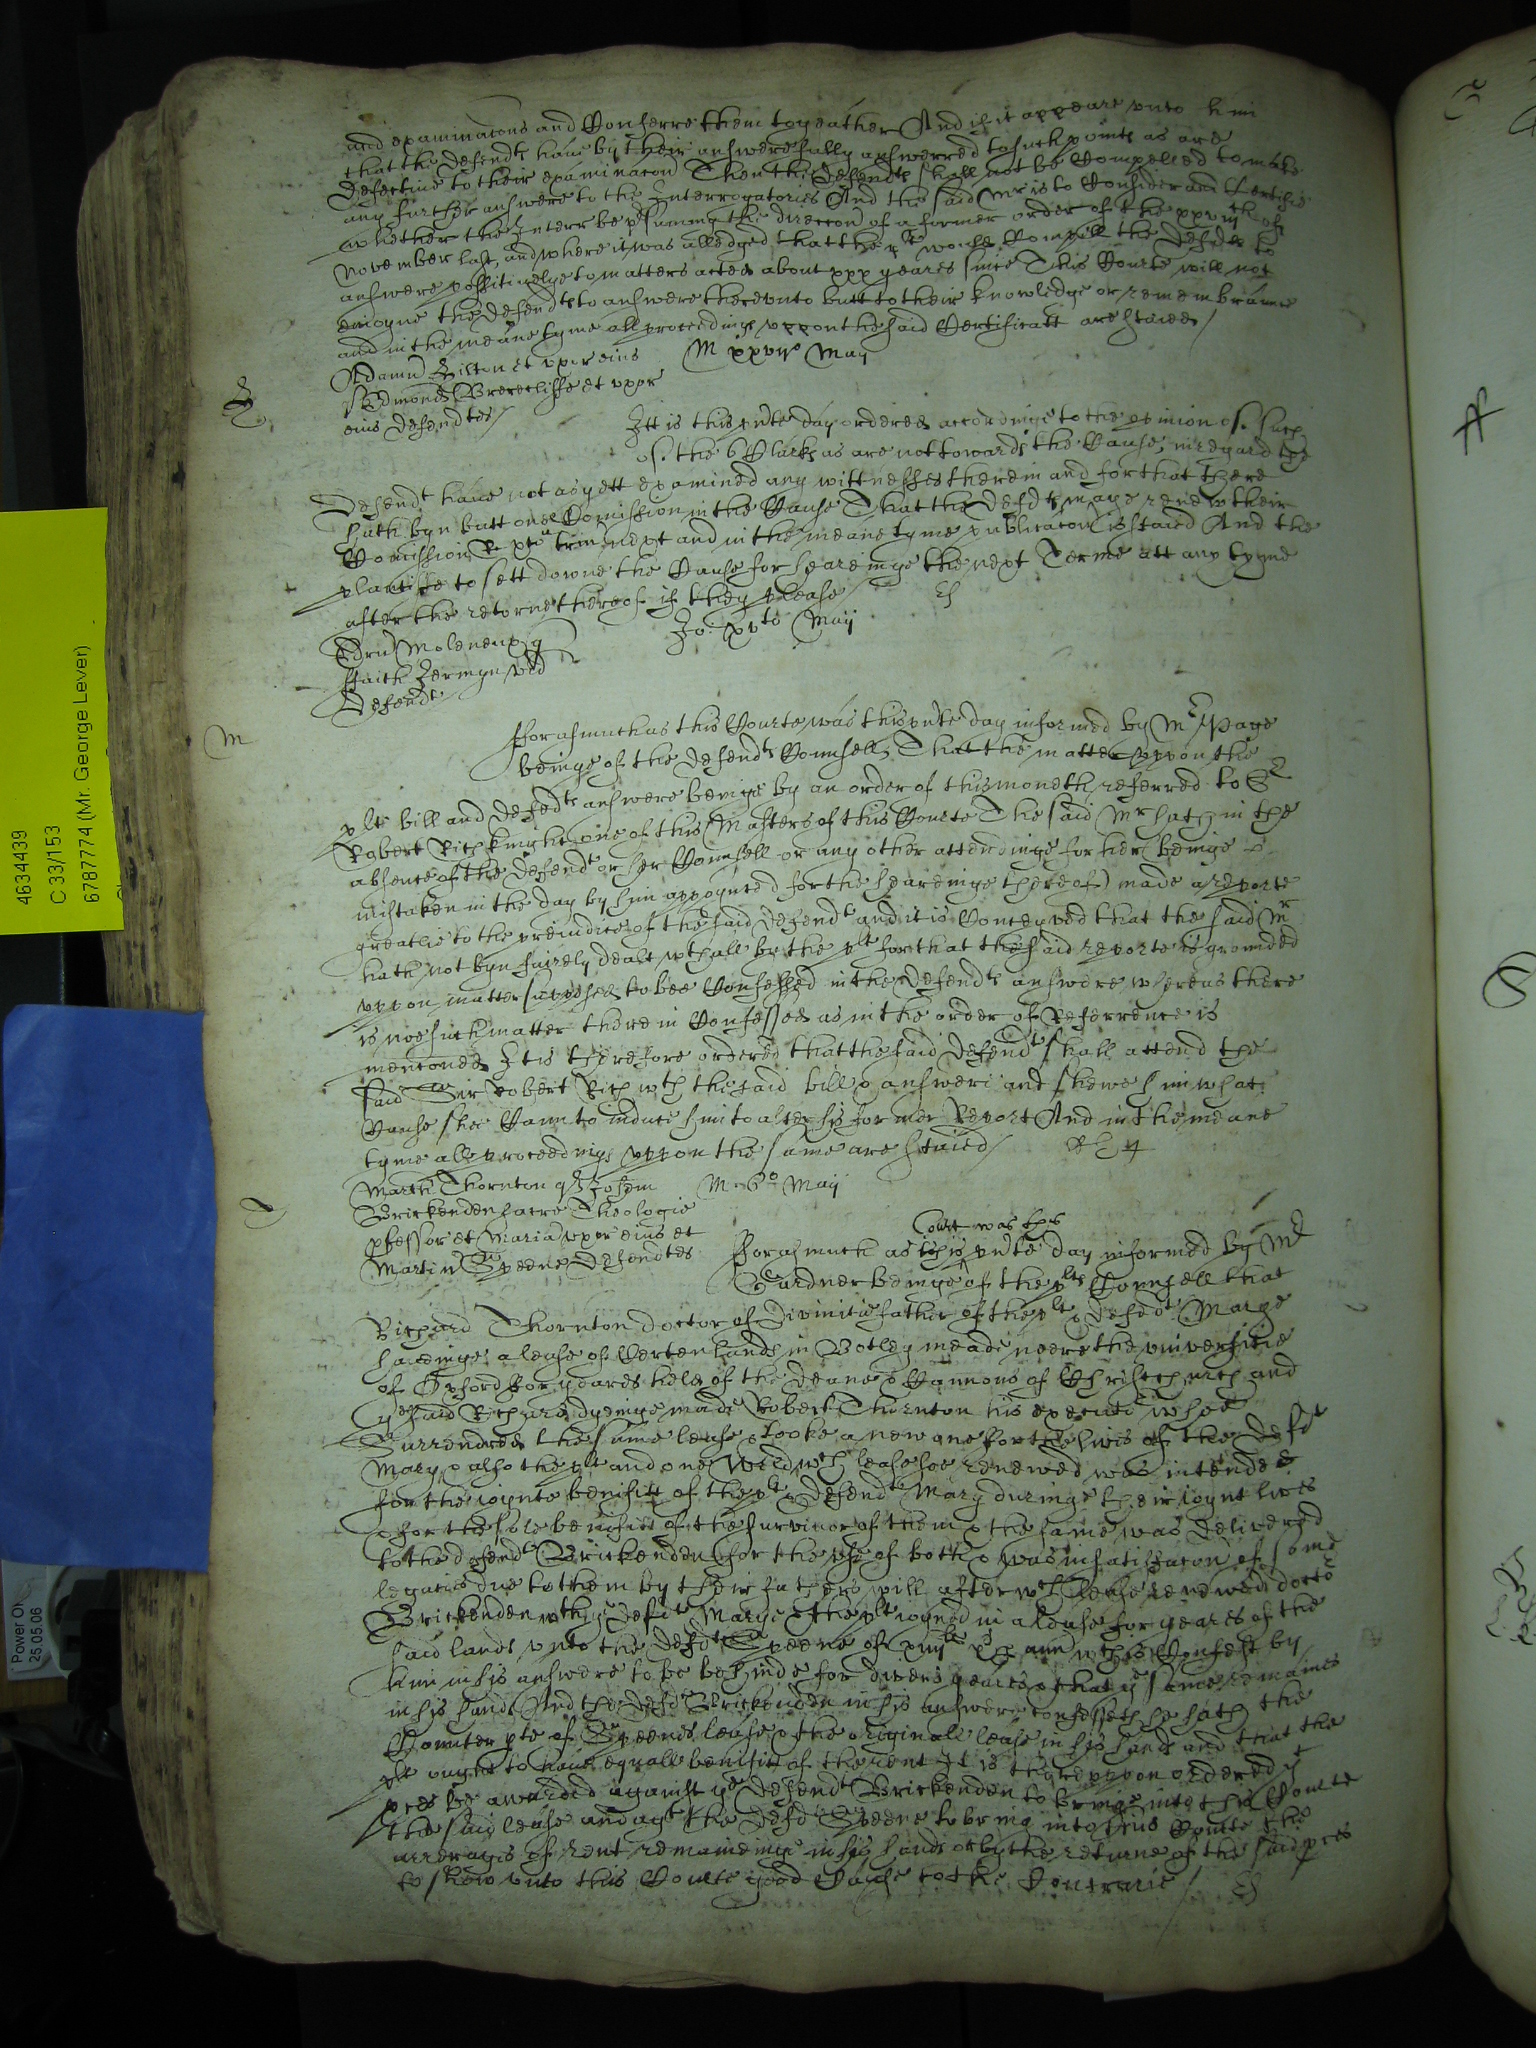 and examinacons and Conferre them togeather And if it appeare vnto him
that the defendts haue by their answere fully answerred to such points as are
defective to their examinacon Then the defendts shall not be Compelled to make
any further answere to the Interrogatories And the said Mr is to Consider and Certifie
whether the Interr be psuaming the direccon of a former order of the xxviijth of
November last, and where it was alledged that the plt would Compell the defdts to
answere possitivelye to matters acted about xxx yeares since This Courte will not
enioyne the defendts to answere therevnto butt to their knowledge or remembraunce
and in the meane tyme all proceedings vppon the said Certificatt are staied /
Adamu Hilton et vxor eius M xxvijo May
Edmond Brerecliffe et vxor
eius defendtes /
Itt is this pnte day ordered accordinge to the opinion of such
of the 6 Clarks as are not towards the Cause, in regard the
Defendt haue not as yett examined any wittnesses therein and for that there
hath byn butt one Comission in the Cause That the defdts maye renew their
Comission R xpa trin next and in the meane tyme publicacon is staied And the
plantife to sett downe the Cause for heareinge the next Terme att any tyme
after the retorne thereof if they please /
Edru Moleneux q Jo: xvto May
ffaith Jermyn vid
Defendt /
M
fforasmuch as this Courte was this pnte day informed by Mr Page
beinge of the defendts Counsell, That the matter vppon the
plts bill and defedts answere beinge by an order of this moneth referred to Sr
Robert Rich knight one of this Masters of this Courte The said Mr hath in the
absence of the defendt or her Counsell or any other attendinge for her (beinge
mistaken in the day by him appoynted for the heareinge thereof) made a reporte
greatlie to the preiudice of the said defendt and it is Conceyved that the said Mr
hath not byn fairely dealt wthall by the plt for that the said reporte is grounded
vppon matter supposed to bee Confessed in the defendts answere whereas there
is noe such matter therein Confessed as in the order of Referrence is
mentoned It is therefore ordered that the said defendt shall attend the
said Sir Robert Rich wth the said bill & answere and shewe him what
Cause shee Cann to induce him to alter his former Report And in the meane
tyme all proceedings vppon the same are staied /
Marth Thornton q Johem M 6o May
Brickenden sacre Theologie
pfessor et Maria vxor eius et
Martin Speene Defendtes
Court was this
fforasmuch as this pnte day informed by Mr
Gardner beinge of the plts Counsell that
Richard Thornton doctor of Divinitie father of the plt & defedt Marye
haveinge a lease of Certen lands in Botley meade neere the vniversitie
of Oxford for yeares held of the Deane & Cannons of Christchurch and
ye said Richard dyeinge made Robert Thornton his executr whoe
Surrendred the same lease & tooke a new one for the lives of the defdt
Mary & also the plt and one Weld wch lease soe renewed was intended
for the ioynte benifitt of the plt & defendt Mary duringe their ioynt lives
& for the sole benifitt of the survivor of them & the same was delivered
to the defendt Brickenden for the vse of both & was in satisfacon of some
legacies due to them by their fathers will after wch lease renewed doctor
Brickenden wth ye defdt Marye & the plt ioyned in a lease for yeares of the
said lands vnto the defdt Speene of xviijli p ann wch is Confest by
him in his answere to be behinde for divers yeares & that ye same remaines
in his hands And the defdt Brickenden in his answere confesseth he hath the
Counter pte of Speenes lease & the originall lease in his hands and that the
plt ought to haue equall benifitt of the rent It is therevppon ordered yt
pces be awarded against ye defendt Brickenden to bringe into this Courte
the said lease and agt the defdt Speene to bring into this Courte the
arrerages of rent remaineinge in his hands or by the returne of the said pces
to shew vnto this Courte good Cause to the Contrarie /
4634439
C 33/153
6787774 (Mr. George Lever)
Power On
25.05.06